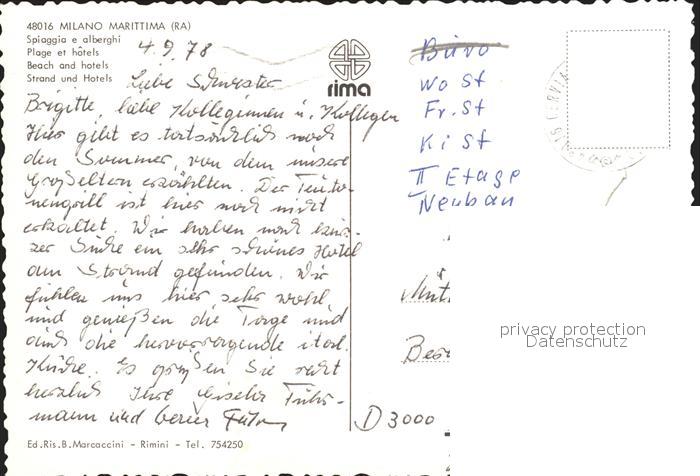 48016 MILANO MARITTIMA (RA)
Spiaggia e alberghi
Plage et hôtels
Beach and hotels
Strand und Hotels
4.9.78
rima
Liebe Schwester
Brigitte, liebe Kolleginnen u. Kollegen
Hier gibt es tatsächlich noch
den Sommer, von dem unsere
Großeltern erzählten. Der Teuto-
nengrill ist hier noch nicht
erkaltet. Wir haben nach kur-
zer Suche ein sehr schönes Hotel
am Strand gefunden. Wir
fühlen uns hier sehr wohl
und genießen die Tage und
auch die hervorragende ital.
Küche. Es grüßen Sie recht
herzlich Ihre Gisela Fuhr-
mann und
Büro
Wo St
Fr. St
Ki St
II Etage
Neubau
D 3000
privacy protection
Datenschutz
Ed.Ris.B.Marcaccini - Rimini - Tel. 754250